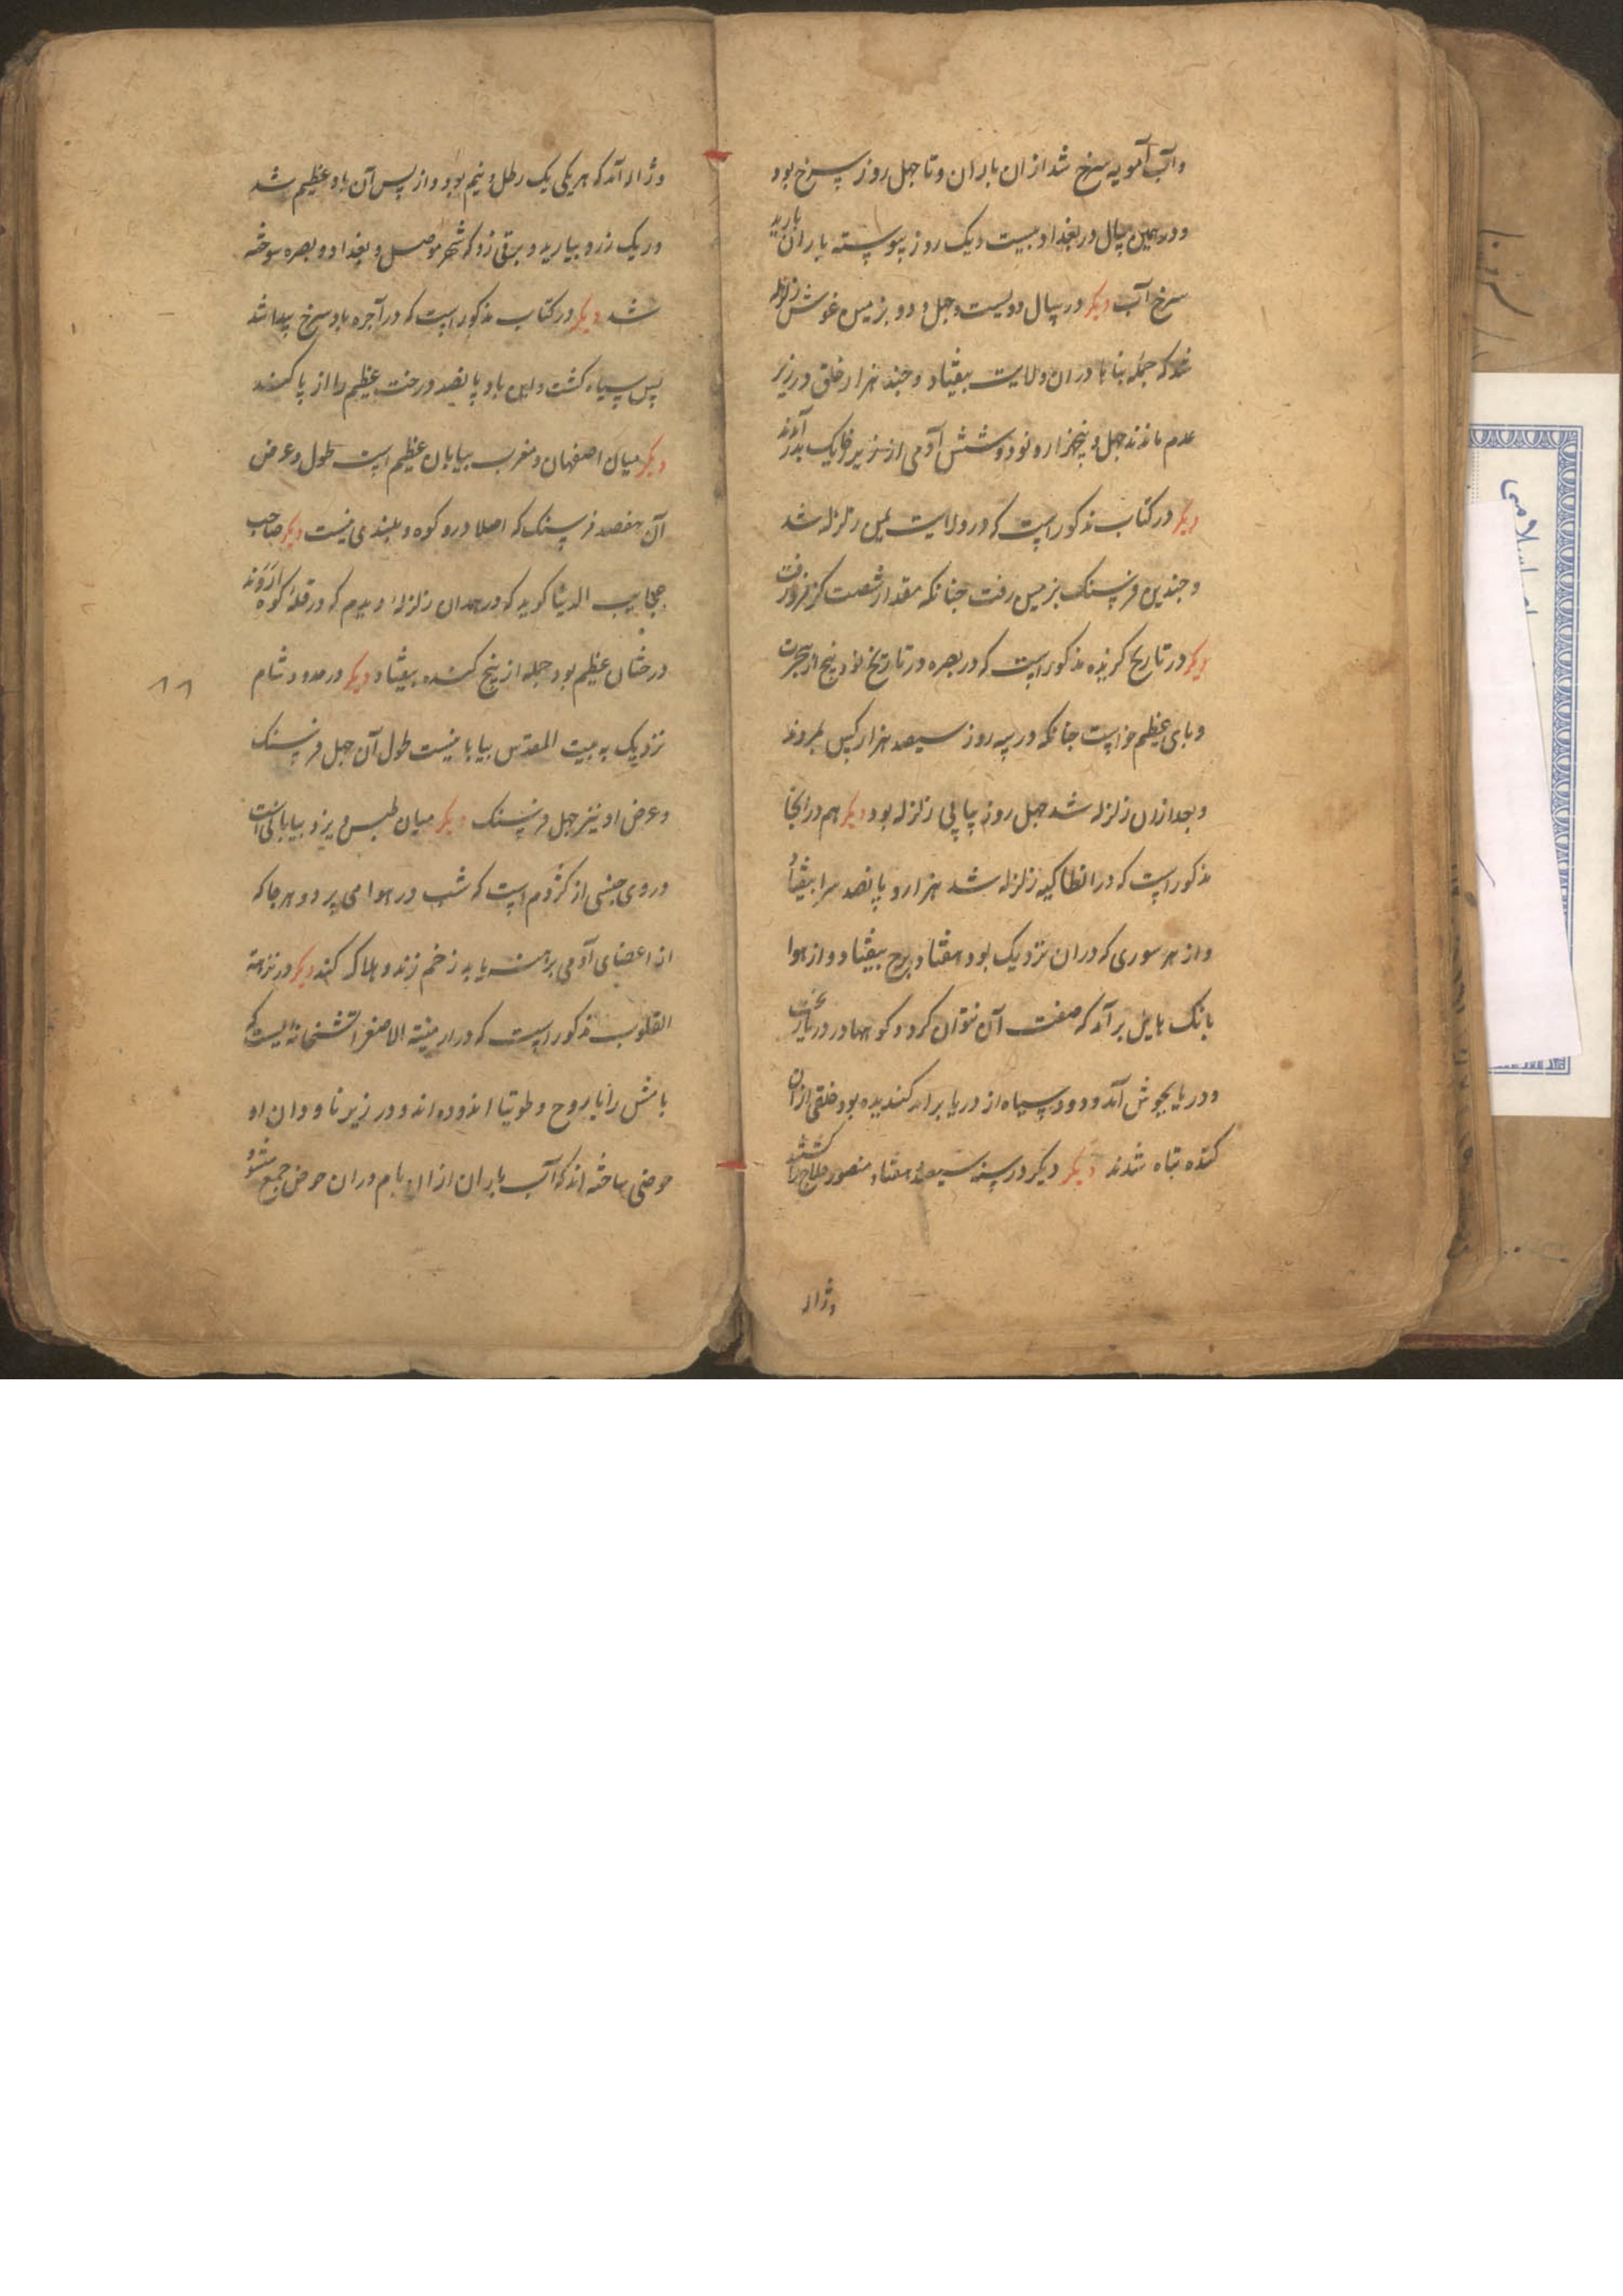 وآب آمویه سرخ شد ازان باران و تا چهل روز سرخ بود
و در همین سال در بغداد بیست و یک روز پیوسته باران بارید
سرخ آب دیگر در سال دویست و چهل و دو بزمین زلزله
شد که جمله بناها دران ولایت بیفتاد و چند هزار خلق در زیر
عدم ماندند چهل و پنجهزار و نود و شش آدمی از زیر خاک بدر آمدند
دیگر در کتاب مذکور است که در ولایت یمن زلزله شد
و چندین فرسنک بزمین رفت چنانکه مقدار شصت کز فرو رفت
دیگر در تاریخ کزیده مذکور است که در بصره در تاریخ نود و پنج از هجرت
وبای عظیم خواست چنانکه در سه روز سیصد هزار کس بمردند
و بعد ازان زلزله شد چهل روز پیاپی زلزله بود دیگر هم در انجا
مذکور است که در انطاکیه زلزله شد هزار و پانصد سرا بیفتاد
و از هر سوری که دران نزدیک بود هفتاد برج بیفتاد و از هوا
بانک هایل بر آمد که صفت آن نتوان کرد و کوهها در دریا
و دریا بجوش آمد و دود سیاه از دریا برامد کندیده بود خلقی ازان
کنده تباه شدند دیگر دیگر در سنه سیصد و هفتاد منصور حلاج را کشتند
وژاله
وژاله آمد که هر یکی یک رطل و نیم بود و از پس آن باد عظیم شد
و ریک زرد ببارید و برقی زد که شهر موصل و بغداد و بصره سوخته
شد دیگر در کتاب مذکور است که در آخره باد سرخ پیدا شد
پس سیاه کشت و این باد پانصد درخت عظیم را از پا کند
دیگر میان اصفهان و مغرب بیابان عظیم است طول و عرض
آن هفصد فرسنک که اصلا درو کوه و بلندی نیست دیگر صاحب
عجایب الدنیا کوید که در همدان زلزله دیدم که در قله کوه اروند
درختان عظیم بود جمله از بیخ کنده بیفتاد دیگر در حدود شام
نزدیک به بیت المقدس بیابانیست طول آن چهل فرسنک
و عرض او نیز چهل فرسنک دیگر میان طبس و یزد بیابانی است
در وی جنسی از کژدم است که شب در هوا می پرد و هر جا که
از اعضای آدمی برهنه یابد زخم زند و هلاک کند دیگر در نزهة
القلوب مذکور است که در ارمینة الاصغر آتشخانه ایست که
بامش را باروح و طوتیا اندوده اند و در زیر ناودان او
حوضی ساخته اند که آب باران ازان بام دران حوض جمع میشود